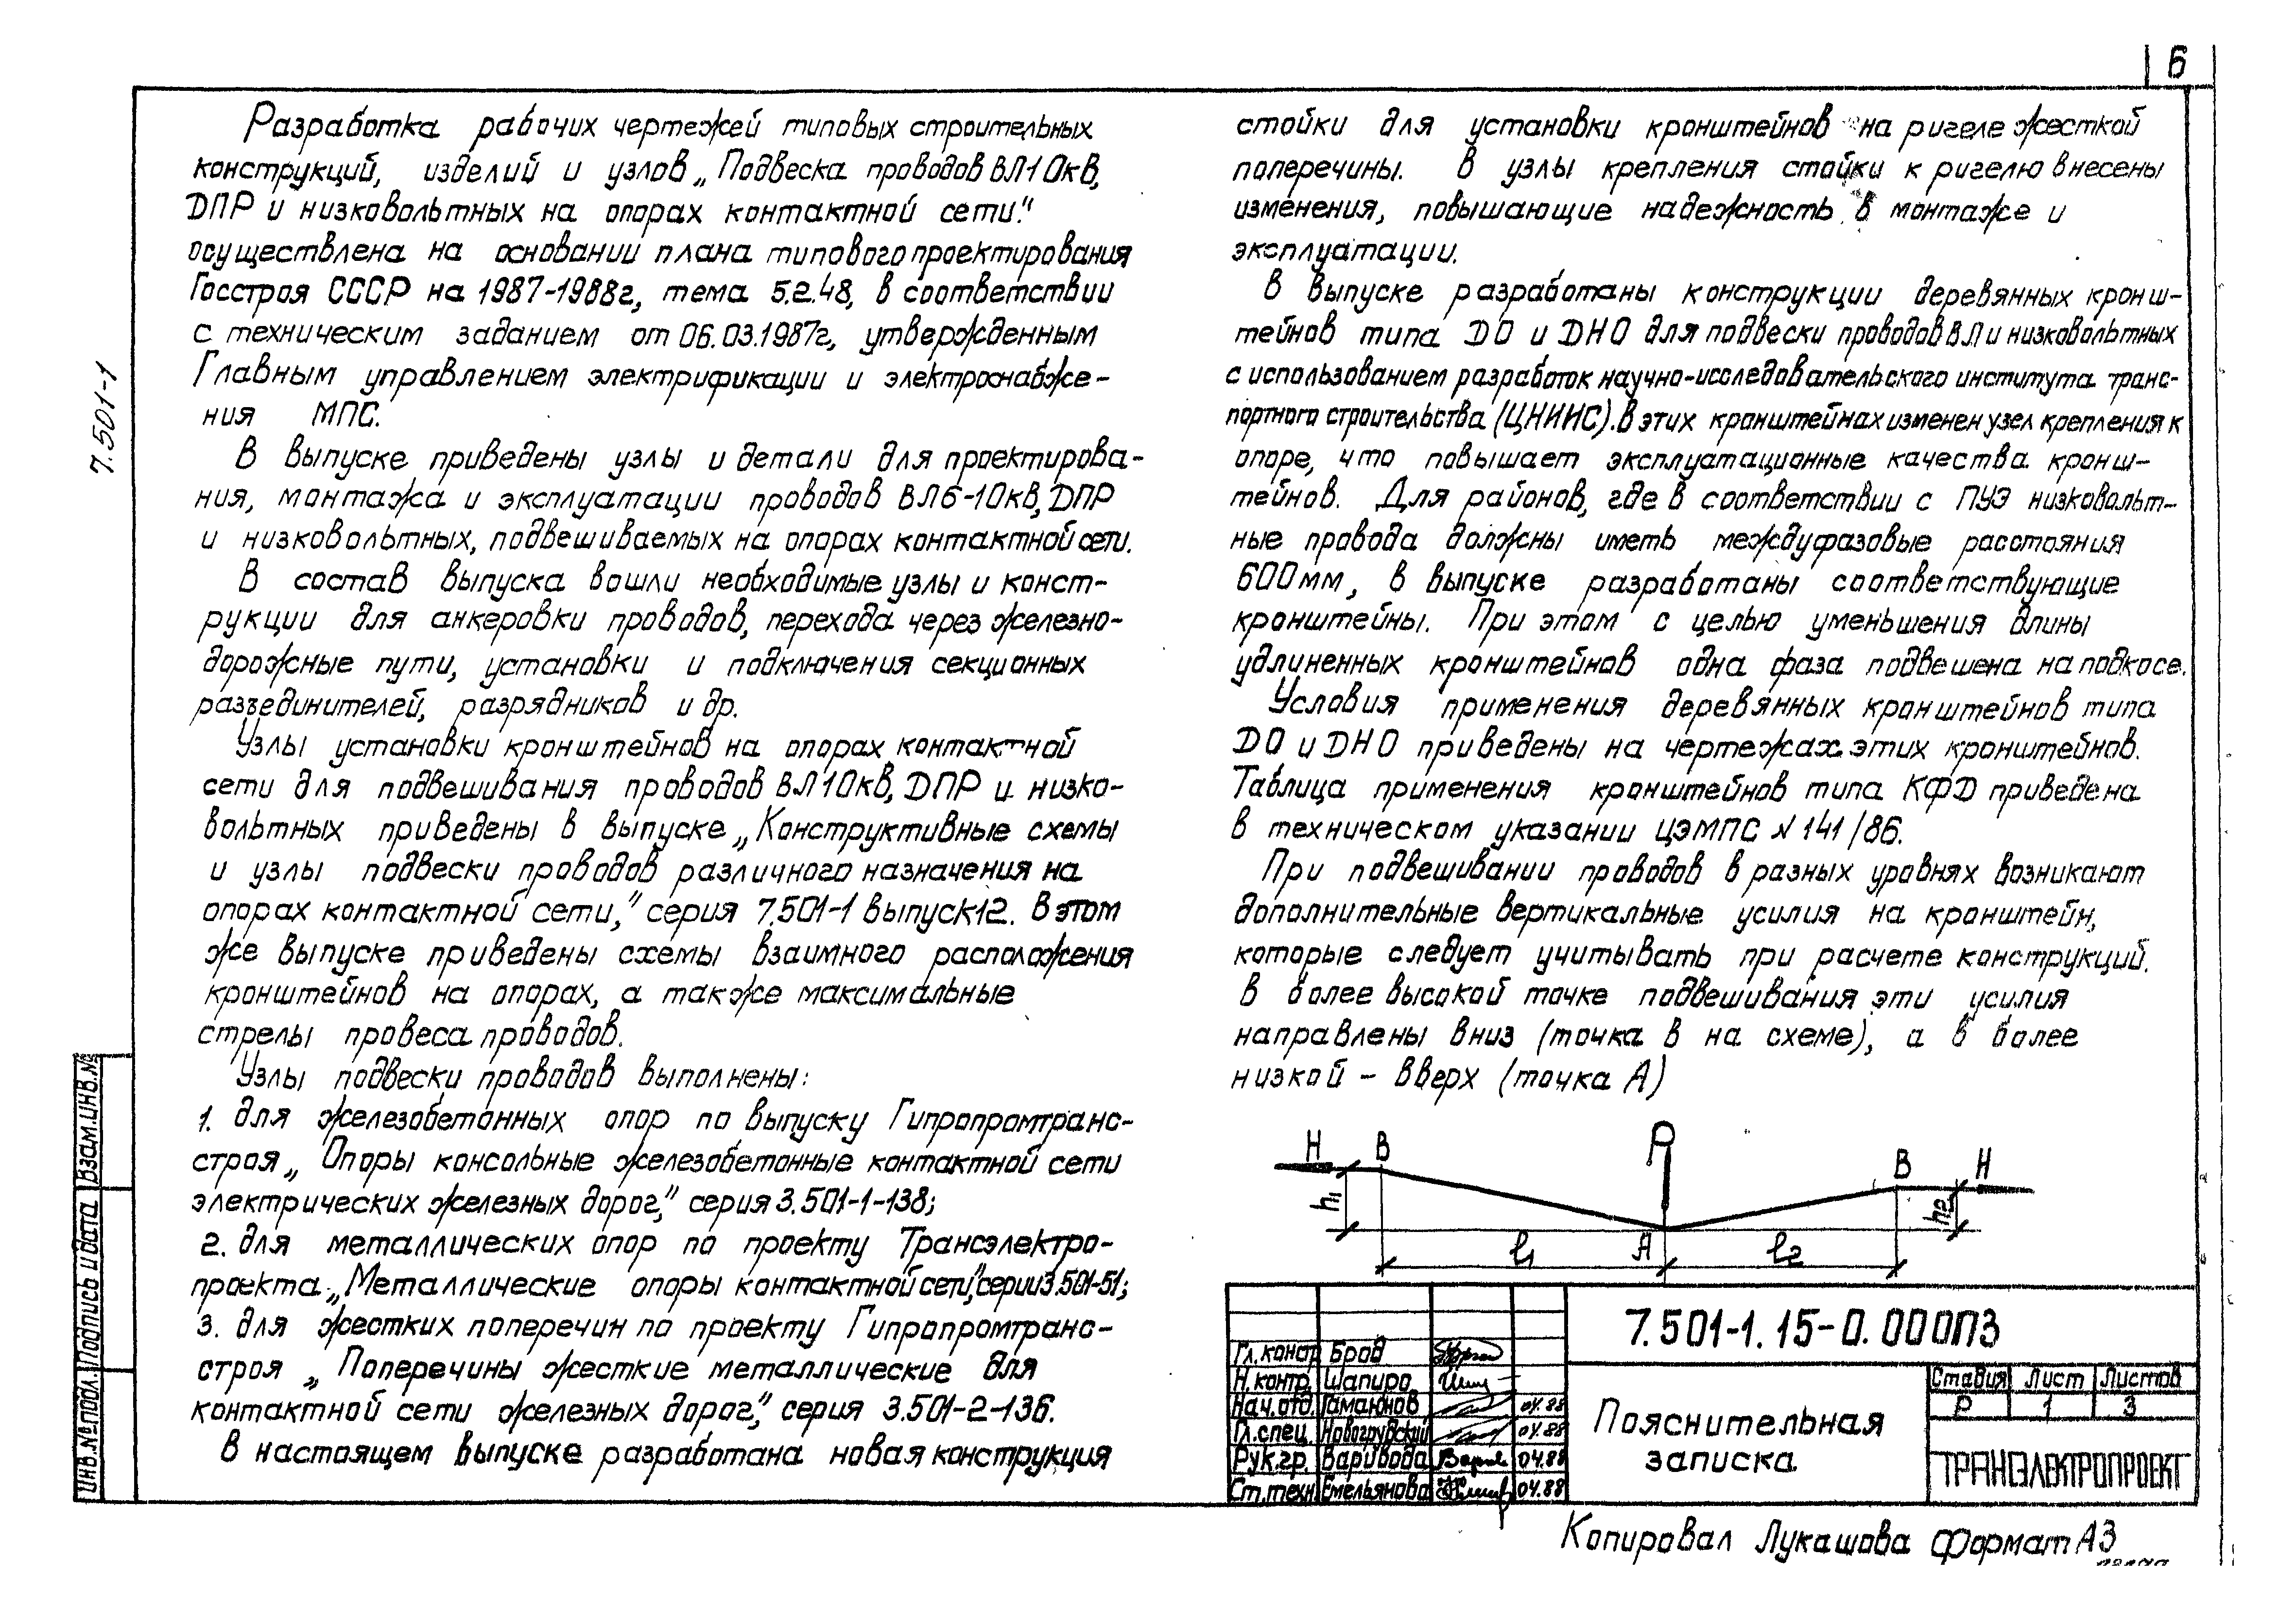 6
Разработка рабочих чертежей типовых строительных
конструкций, изделий и узлов „Подвеска проводов ВЛ10кВ,
ДПР и низковольтных на опорах контактной сети."
осуществлена на основании плана типового проектирования
Госстроя СССР на 1987-1988г, тема 5.2.48, в соответствии
с техническим заданием от 06.03.1987г, утвержденным
Главным управлением электрификации и электроснабже-
ния МПС.
В выпуске приведены узлы и детали для проектирова-
ния, монтажа и эксплуатации проводов ВЛ6-10кВ, ДПР
и низковольтных, подвешиваемых на опорах контактной сети.
В состав выпуска вошли необходимые узлы и конст-
рукции для анкеровки проводов, перехода через железно-
дорожные пути, установки и подключения секционных
разъединителей, разрядников и др.
Узлы установки кронштейнов на опорах контактной
сети для подвешивания проводов ВЛ10кВ, ДПР и низко-
вольтных приведены в выпуске „Конструктивные схемы
и узлы подвески проводов различного назначения на
опорах контактной сети," серия 7.501-1 выпуск12. В этом
же выпуске приведены схемы взаимного расположения
кронштейнов на опорах, а также максимальные
стрелы провеса проводов.
Узлы подвески проводов выполнены:
1. для железобетонных опор по выпуску Гипропромтранс-
строя „Опоры консольные железобетонные контактной сети
электрических железных дорог," серия 3.501-1-138;
2. для металлических опор по проекту Трансэлектро-
проекта „Металлические опоры контактной сети," серии 3.501-51;
3. для жестких поперечин по проекту Гипропромтранс-
строя „Поперечины жесткие металлические для
контактной сети железных дорог," серия 3.501-2-136.
В настоящем выпуске разработана новая конструкция
стойки для установки кронштейнов на ригеле жесткой
поперечины. В узлы крепления стойки к ригелю внесены
изменения, повышающие надежность в монтаже и
эксплуатации.
В выпуске разработаны конструкции деревянных кронш-
тейнов типа ДО и ДНО для подвески проводов ВЛ и низковольтных
с использованием разработок научно-исследовательского института транс-
портного строительства (ЦНИИС). В этих кронштейнах изменен узел крепления к
опоре, что повышает эксплуатационные качества кронш-
тейнов. Для районов, где в соответствии с ПУЭ низковольт-
ные провода должны иметь междуфазовые расстояния
600мм, в выпуске разработаны соответствующие
кронштейны. При этом с целью уменьшения длины
удлиненных кронштейнов одна фаза подвешена на подкосе.
Условия применения деревянных кронштейнов типа
ДО и ДНО приведены на чертежах этих кронштейнов.
Таблица применения кронштейнов типа КФД приведена
в техническом указании ЦЭМПС N 141/86.
При подвешивании проводов в разных уровнях возникают
дополнительные вертикальные усилия на кронштейн,
которые следует учитывать при расчете конструкций.
В более высокой точке подвешивания эти усилия
направлены вниз (точка В на схеме), а в более
низкой - вверх (точка А)
H B P B H
h1 h2
l1 A l2
7.501-1
Взам.инв.№
Подпись и дата
Инв.№подл.
7.501-1.15-0.000ПЗ
Гл.констр Брод
Н.контр. Шапиро
Нач.отд. Гамаюнов 04.88
Гл.спец. Новогрудский 04.88
Рук.гр. Варивода 04.88
Ст.техн Емельянова 04.88
Пояснительная
записка
Стадия Лист Листов
Р 1 3
ТРАНСЭЛЕКТРОПРОЕКТ
Копировал Лукашова Формат А3